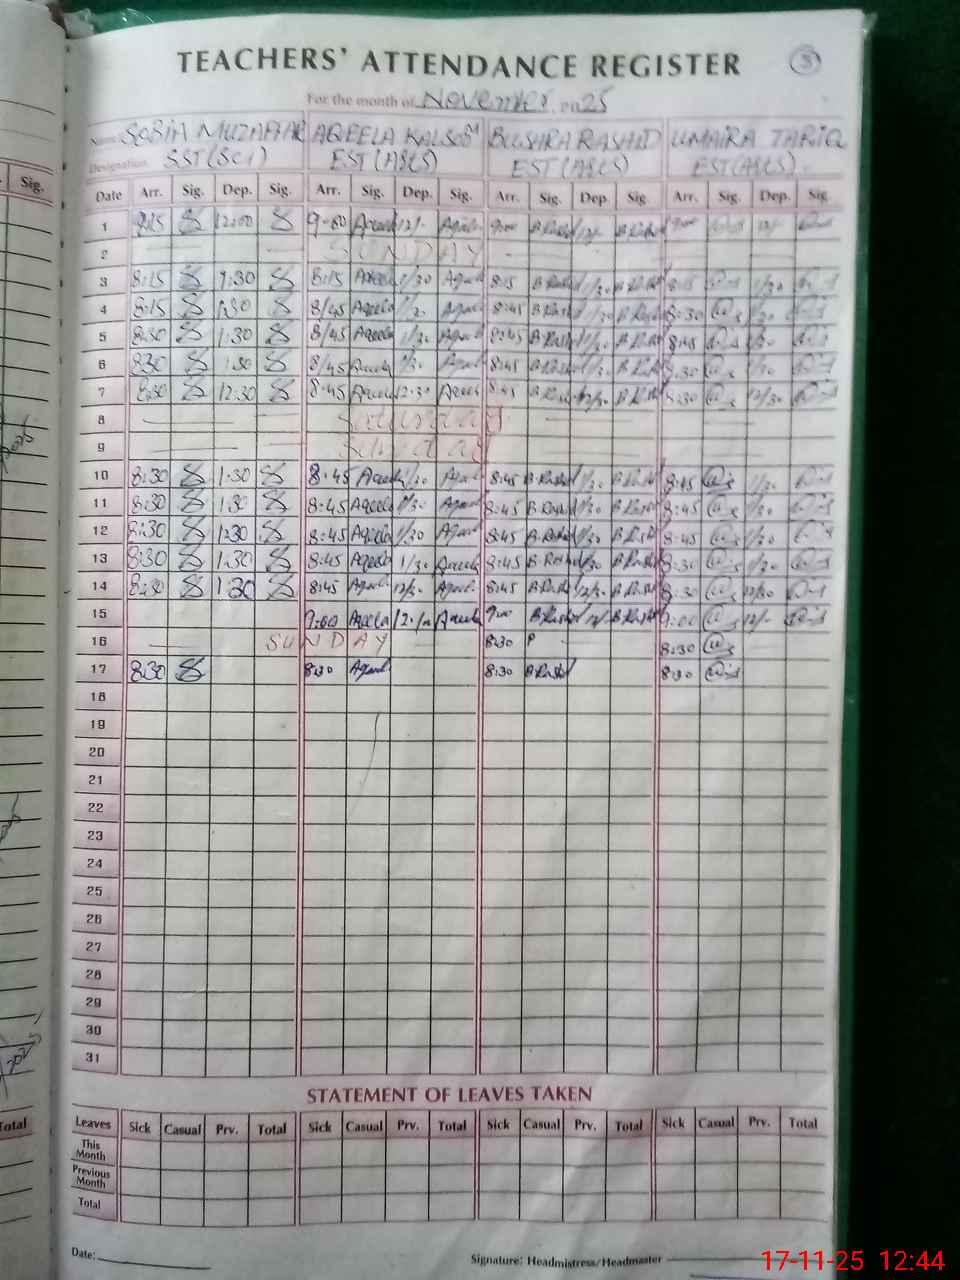 TEACHERS' ATTENDANCE REGISTER 3
For the month of November 2025
Name SOBIA MUZAFFAR AQEELA KALSOOM BUSHRA RASHID UMAIRA TARIQ
Designation SST(SCI) EST(A&S) EST(A&S) EST(A&S)
Sig. Date Arr. Sig. Dep. Sig. Arr. Sig. Dep. Sig. Arr. Sig. Dep. Sig. Arr. Sig. Dep. Sig.
1 9:15 12:00 9-00 Aqeela 12/- 9:00 B.Rashid 12/- B.Rashid 9:00 12/-
2 SUNDAY
3 8:15 1:30 8:15 Aqeela 1/30 8:15 B.Rashid 1/30 B.Rashid 8:15 1/30
4 8:15 1:30 8/45 Aqeela 8:45 B.Rashid 1/30 B.Rashid 8:30 1/30
5 8:30 1:30 8/45 Aqeela 1/30 8:45 B.Rashid 1/30 B.Rashid 8:45 1/30
6 8:30 1:30 8/45 Aqeela 1/30 8:45 B.Rashid 1/30 B.Rashid 8:30 1/30
7 8:30 12:30 8:45 Aqeela 12:30 Aqeela 8:45 B.Rashid 12/30 B.Rashid 8:30 12/30
8 Saturday
9 Sunday
10 8:30 1:30 8:45 Aqeela 1/30 8:45 B.Rashid 1/30 B.Rashid 8:45 1/30
11 8:30 1:30 8:45 Aqeela 1/30 8:45 B.Rashid 1/30 B.Rashid 8:45 1/30
12 8:30 1:30 8:45 Aqeela 1/30 8:45 B.Rashid 1/30 B.Rashid 8:45 1/30
13 8:30 1:30 8:45 Aqeela 1/30 Aqeela 8:45 B.Rashid 1/30 B.Rashid 8:30 1/30
14 8:30 1:30 8:45 12/30 8:45 B.Rashid 12/30 B.Rashid 8:30 12/30
15 9:00 Aqeela Aqeela 9:00 B.Rashid 12/- B.Rashid 9:00 12/-
16 SUNDAY 8:30 P 8:30
17 8:30 8:30 8:30 B.Rashid 8:30
18
19
20
21
22
23
24
25
26
27
28
29
30
31
STATEMENT OF LEAVES TAKEN
Total Leaves Sick Casual Prv. Total Sick Casual Prv. Total Sick Casual Prv. Total Sick Casual Prv. Total
This Month
Previous Month
Total
Date: Signature: Headmistress/Headmaster
17-11-25 12:44